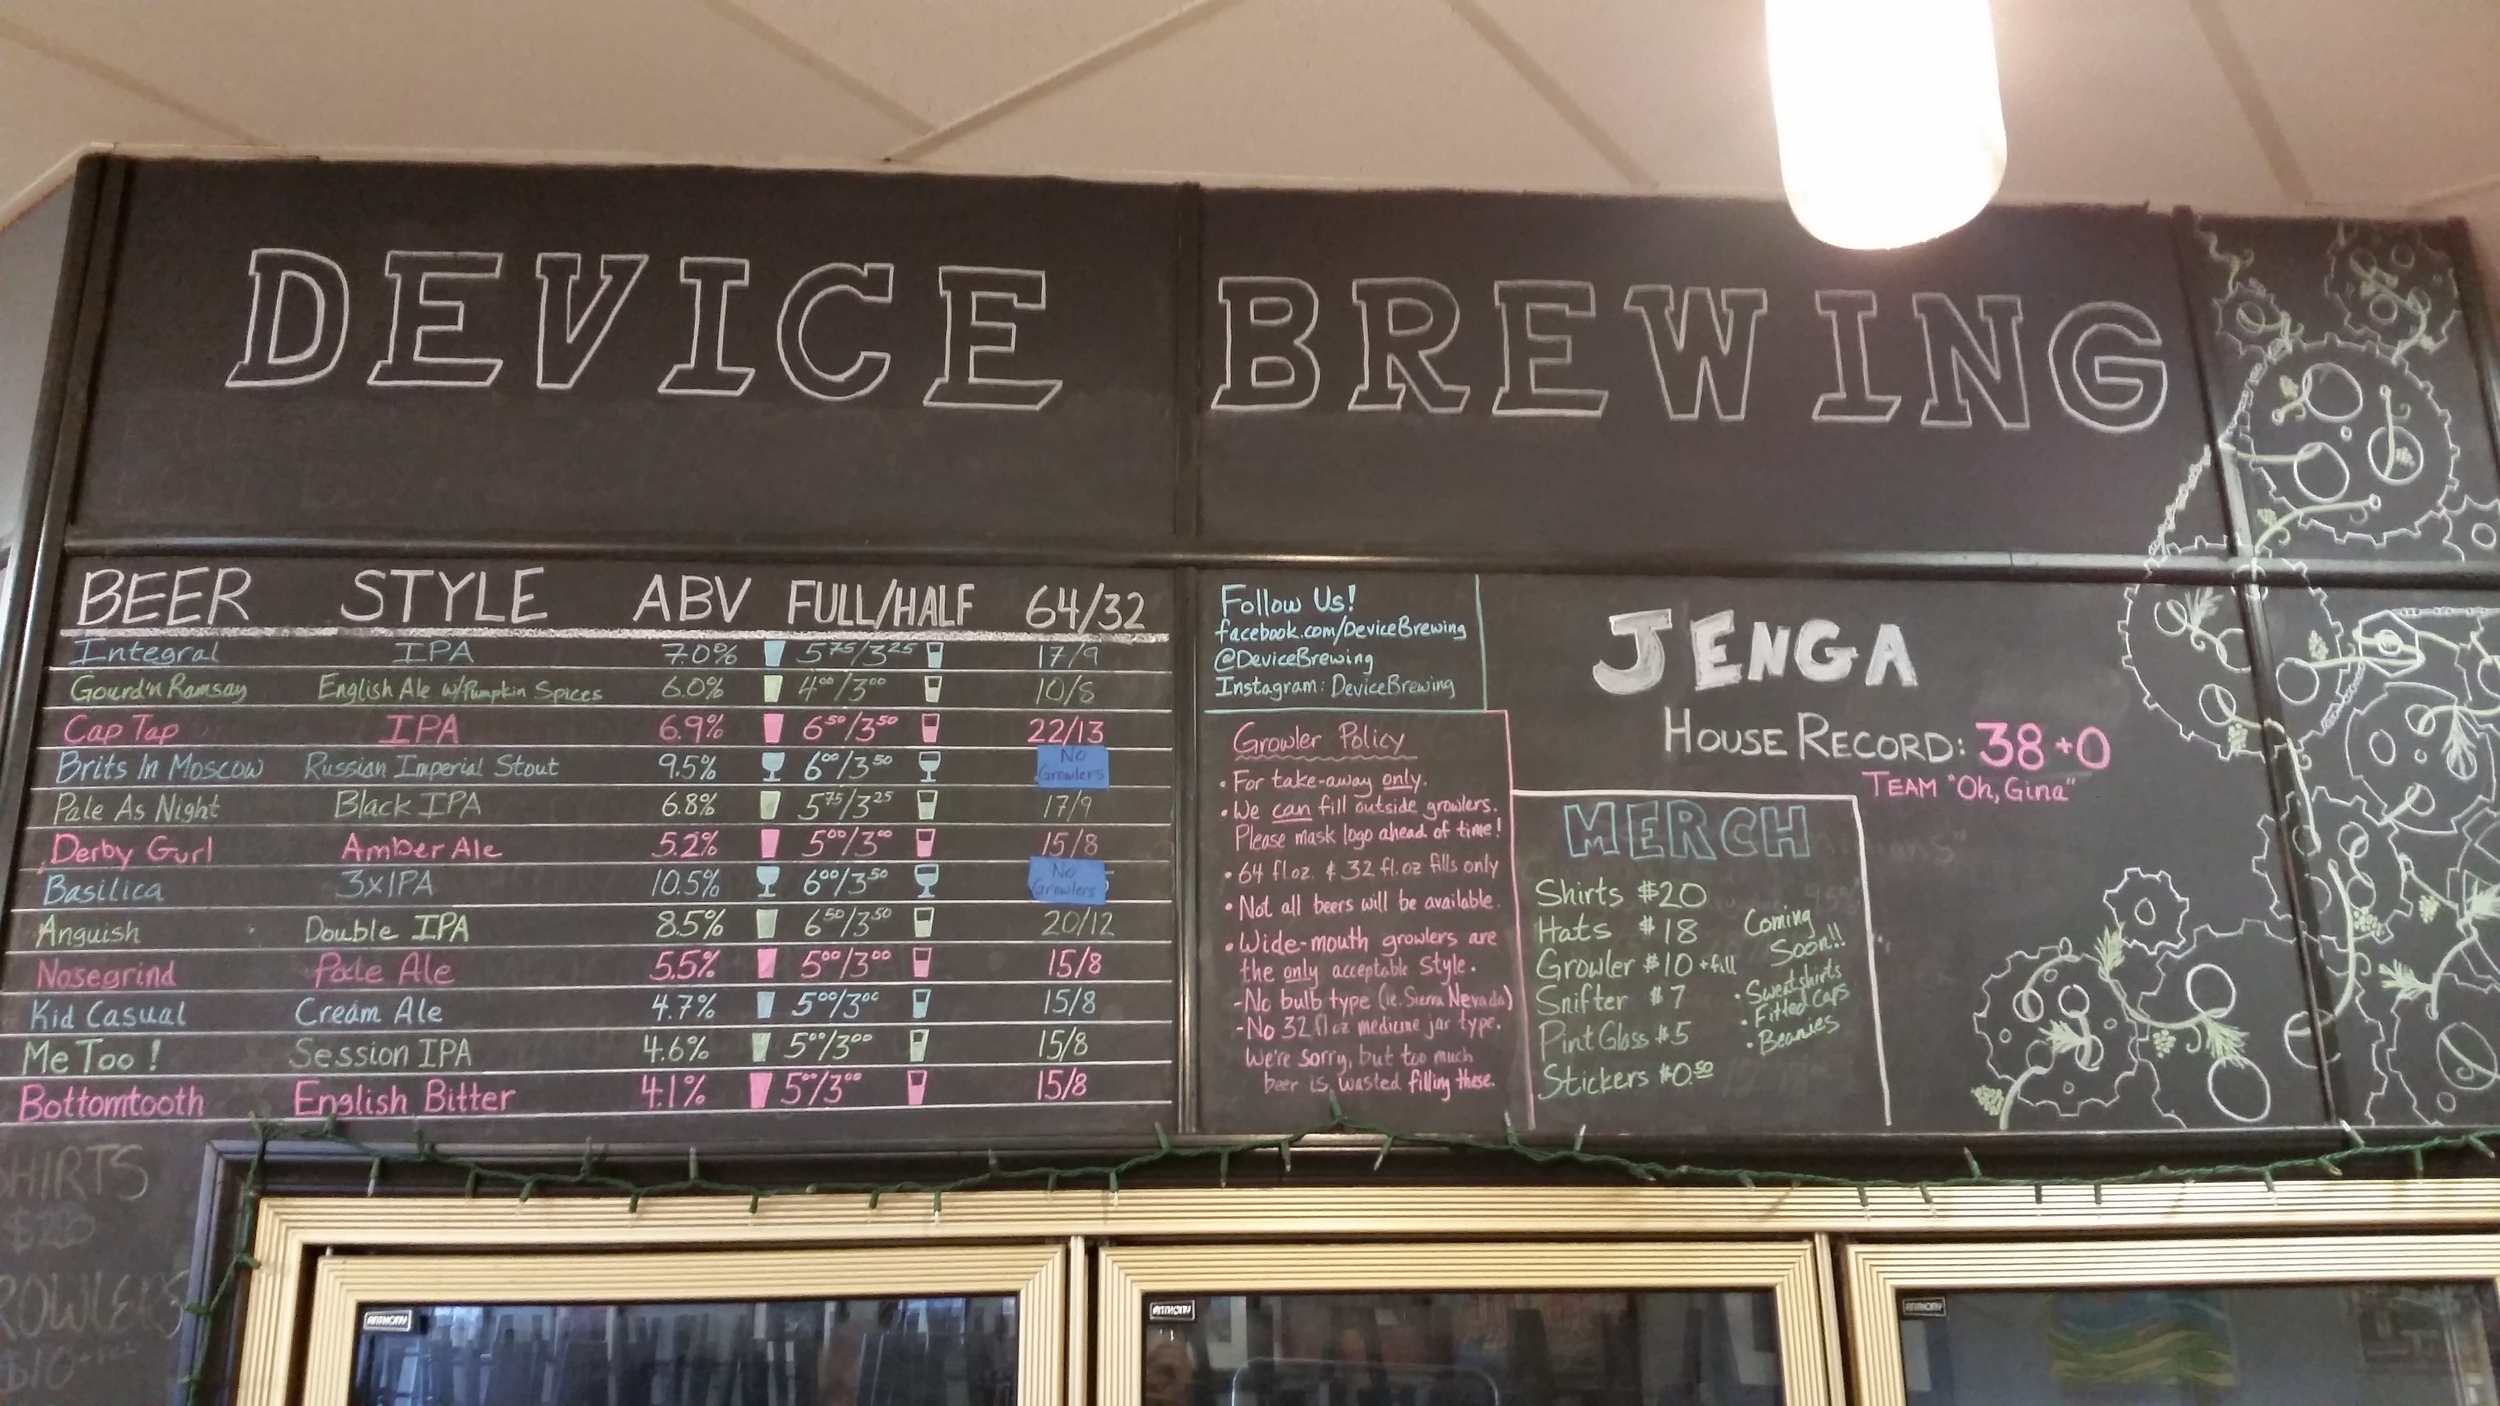 DEVICE BREWING
BEER STYLE ABV FULL/HALF 64/32
Integral IPA 7.0% 5.75/3.25 17/9
Gourd'n Ramsay English Ale w/Pumpkin Spices 6.0% 4.00/3.00 10/8
Cap Tap IPA 6.9% 6.50/3.50 22/13
Brits In Moscow Russian Imperial Stout 9.5% 6.00/3.50 No Growlers
Pale As Night Black IPA 6.8% 5.75/3.25 17/9
Derby Gurl Amber Ale 5.2% 5.00/3.00 15/8
Basilica 3xIPA 10.5% 6.00/3.50 No Growlers
Anguish Double IPA 8.5% 6.50/3.50 20/12
Nosegrind Pale Ale 5.5% 5.00/3.00 15/8
Kid Casual Cream Ale 4.7% 5.00/3.00 15/8
Me Too! Session IPA 4.6% 5.00/3.00 15/8
Bottomtooth English Bitter 4.1% 5.00/3.00 15/8
Follow Us!
facebook.com/DeviceBrewing
@DeviceBrewing
Instagram: DeviceBrewing
Growler Policy
• For take-away only.
• We can fill outside growlers.
Please mask logo ahead of time!
• 64 fl oz. & 32 fl. oz fills only
• Not all beers will be available.
• Wide-mouth growlers are
the only acceptable style.
- No bulb type (ie. Sierra Nevada)
- No 32 fl oz medicine jar type.
We're sorry, but too much
beer is wasted filling these.
JENGA
HOUSE RECORD: 38+0
TEAM "Oh, Gina"
MERCH
Shirts $20
Hats $18
Growler $10 + fill
Snifter $7
Pint Glass $5
Stickers $0.50
Coming
Soon!!
• Sweatshirts
• Fitted Caps
• Beanies
SHIRTS
$20
$10 + fill
ANTHONY
ANTHONY
ANTHONY